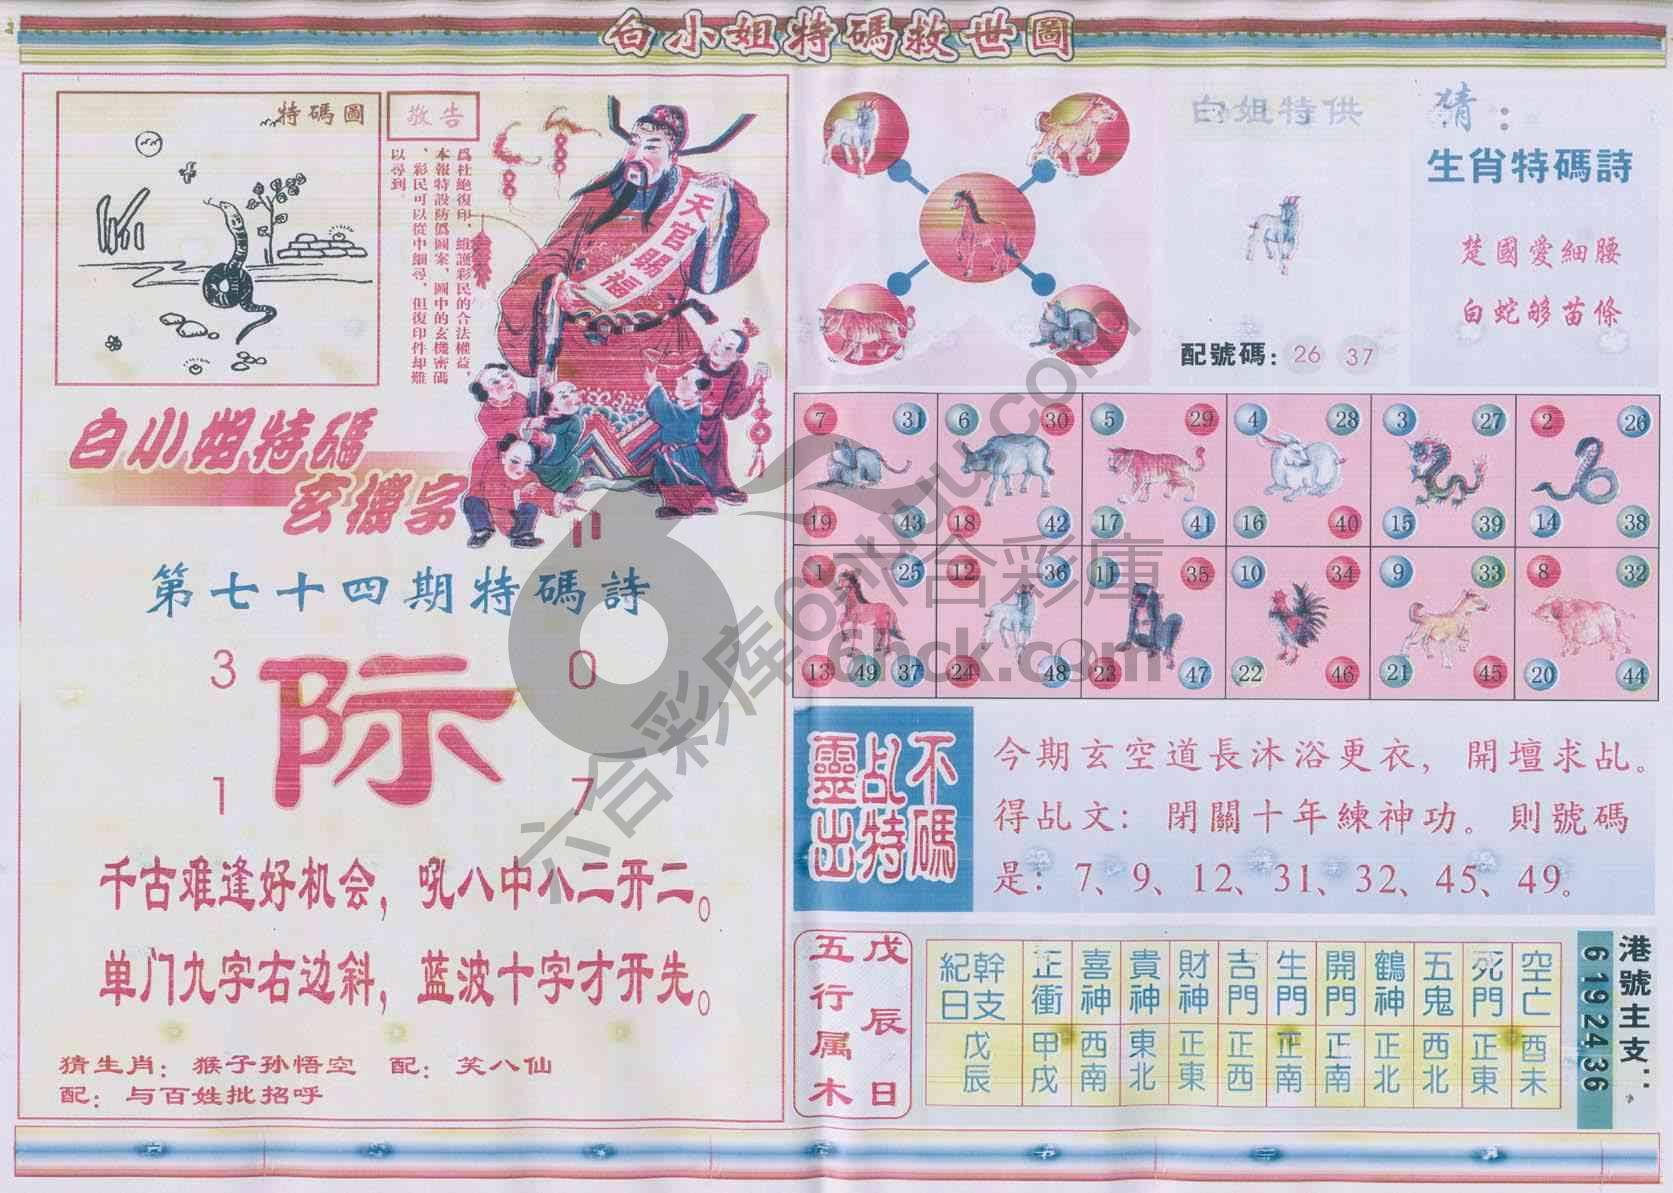 白小姐特碼救世圖
特碼圖
敬告
為杜絕復印、維護彩民的合法權益，
本報特設防偽圖案、圖中的玄機密碼
、彩民可以從中細尋，但復印件却難
以尋到。
天官賜福
白小姐特碼
玄機字
第七十四期特碼詩
3 0
际
1 7
千古难逢好机会，吼八中八二开二。
单门九字右边斜，蓝波十字才开先。
猜生肖：猴子孙悟空 配：笑八仙
配：与百姓批招呼
白姐特供
配號碼：26 37
猜：
生肖特碼詩
楚國愛細腰
白蛇够苗條
7 31 6 30 5 29 4 28 3 27 2 26
19 43 18 42 17 41 16 40 15 39 14 38
1 25 12 36 11 35 10 34 9 33 8 32
13 49 37 24 48 23 47 22 46 21 45 20 44
不碼
乩特
靈出
今期玄空道長沐浴更衣，開壇求乩。
得乩文：閉關十年練神功。則號碼
是：7、9、12、31、32、45、49。
戊辰日
五行属木
幹支紀日 正衝 喜神 貴神 財神 吉門 生門 開門 鶴神 五鬼 死門 空亡
戊辰 甲戌 西南 東北 正東 正西 正南 正南 正北 西北 正東 酉未
港號主支：
6 19 24 36
六合彩库 ohtuku.com
六合彩庫
6hck.com